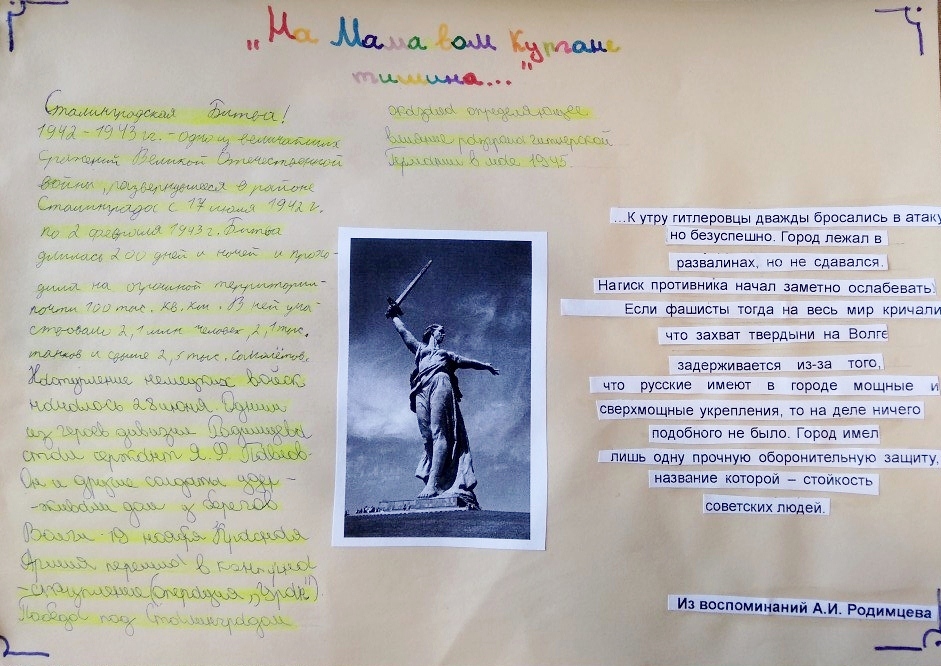 „На Мамавом Кургане
тишина..."
Сталинградская Битва!
1942 - 1943 гг. - одно из величайших
сражений Великой Отечественной
войны, развернувшееся в районе
Сталинграда с 17 июля 1942 г.
по 2 февраля 1943 г. Битва
длилась 200 дней и ночей и прохо-
дила на огромной территории -
почти 100 тыс. кв. км. В ней уча
ствовали 2,1 млн человек, 2,1 тыс.
танков и свыше 2,5 тыс. самолётов.
Наступление немецких войск
началось 28 июня. Одним
из героев дивизии Родимцева
стал сержант Я. Ф. Павлов.
Он и другие солдаты удер-
-живали дом у берегов
Волги. 19 ноября Красная
Армия перешла в контрна
-ступление (операция „Уран").
Победа под Сталинградом
оказала определяющее
влияние разгрома гитлерской
Германии в мае 1945.
...К утру гитлеровцы дважды бросались в атаку
но безуспешно. Город лежал в
развалинах, но не сдавался.
Натиск противника начал заметно ослабевать.
Если фашисты тогда на весь мир кричали
что захват твердыни на Волге
задерживается из-за того,
что русские имеют в городе мощные и
сверхмощные укрепления, то на деле ничего
подобного не было. Город имел
лишь одну прочную оборонительную защиту,
название которой – стойкость
советских людей.
Из воспоминаний А.И. Родимцева